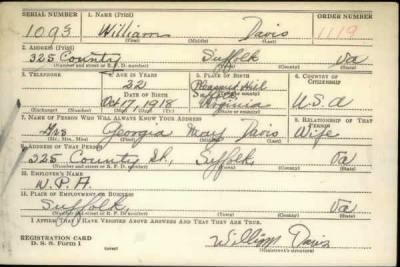 SERIAL NUMBER 1. NAME (Print) ORDER NUMBER
1093 William Davis 1119
(First) (Middle) (Last)
2. ADDRESS (Print)
325 County Suffolk Va
(Number and street or R. F. D. number) (Town) (County) (State)
3. TELEPHONE 4. AGE IN YEARS 5. PLACE OF BIRTH 6. COUNTRY OF CITIZENSHIP
22 Pleasant Hill
DATE OF BIRTH Suffolk
Oct 17, 1918 Virginia U.S.A
(Exchange) (Number) (Mo.) (Day) (Yr.) (State or country)
7. NAME OF PERSON WHO WILL ALWAYS KNOW YOUR ADDRESS 8. RELATIONSHIP OF THAT PERSON
Mrs Georgia May Davis Wife
(Mr., Mrs., Miss) (First) (Middle) (Last)
9. ADDRESS OF THAT PERSON
325 County St, Suffolk, Va
(Number and street or R. F. D. number) (Town) (County) (State)
10. EMPLOYER'S NAME
W.P.A.
11. PLACE OF EMPLOYMENT OR BUSINESS
Suffolk, Va
(Number and street or R. F. D. number) (Town) (County) (State)
I AFFIRM THAT I HAVE VERIFIED ABOVE ANSWERS AND THAT THEY ARE TRUE.
REGISTRATION CARD
D. S. S. Form 1 William Davis
(Registrant's signature)